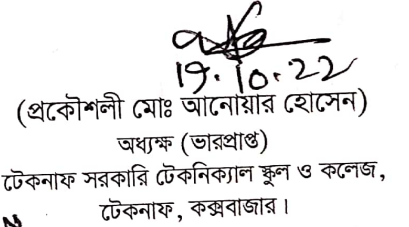 19.10.22
(প্রকৌশলী মোঃ আনোয়ার হোসেন)
অধ্যক্ষ (ভারপ্রাপ্ত)
টেকনাফ সরকারি টেকনিক্যাল স্কুল ও কলেজ,
টেকনাফ, কক্সবাজার।